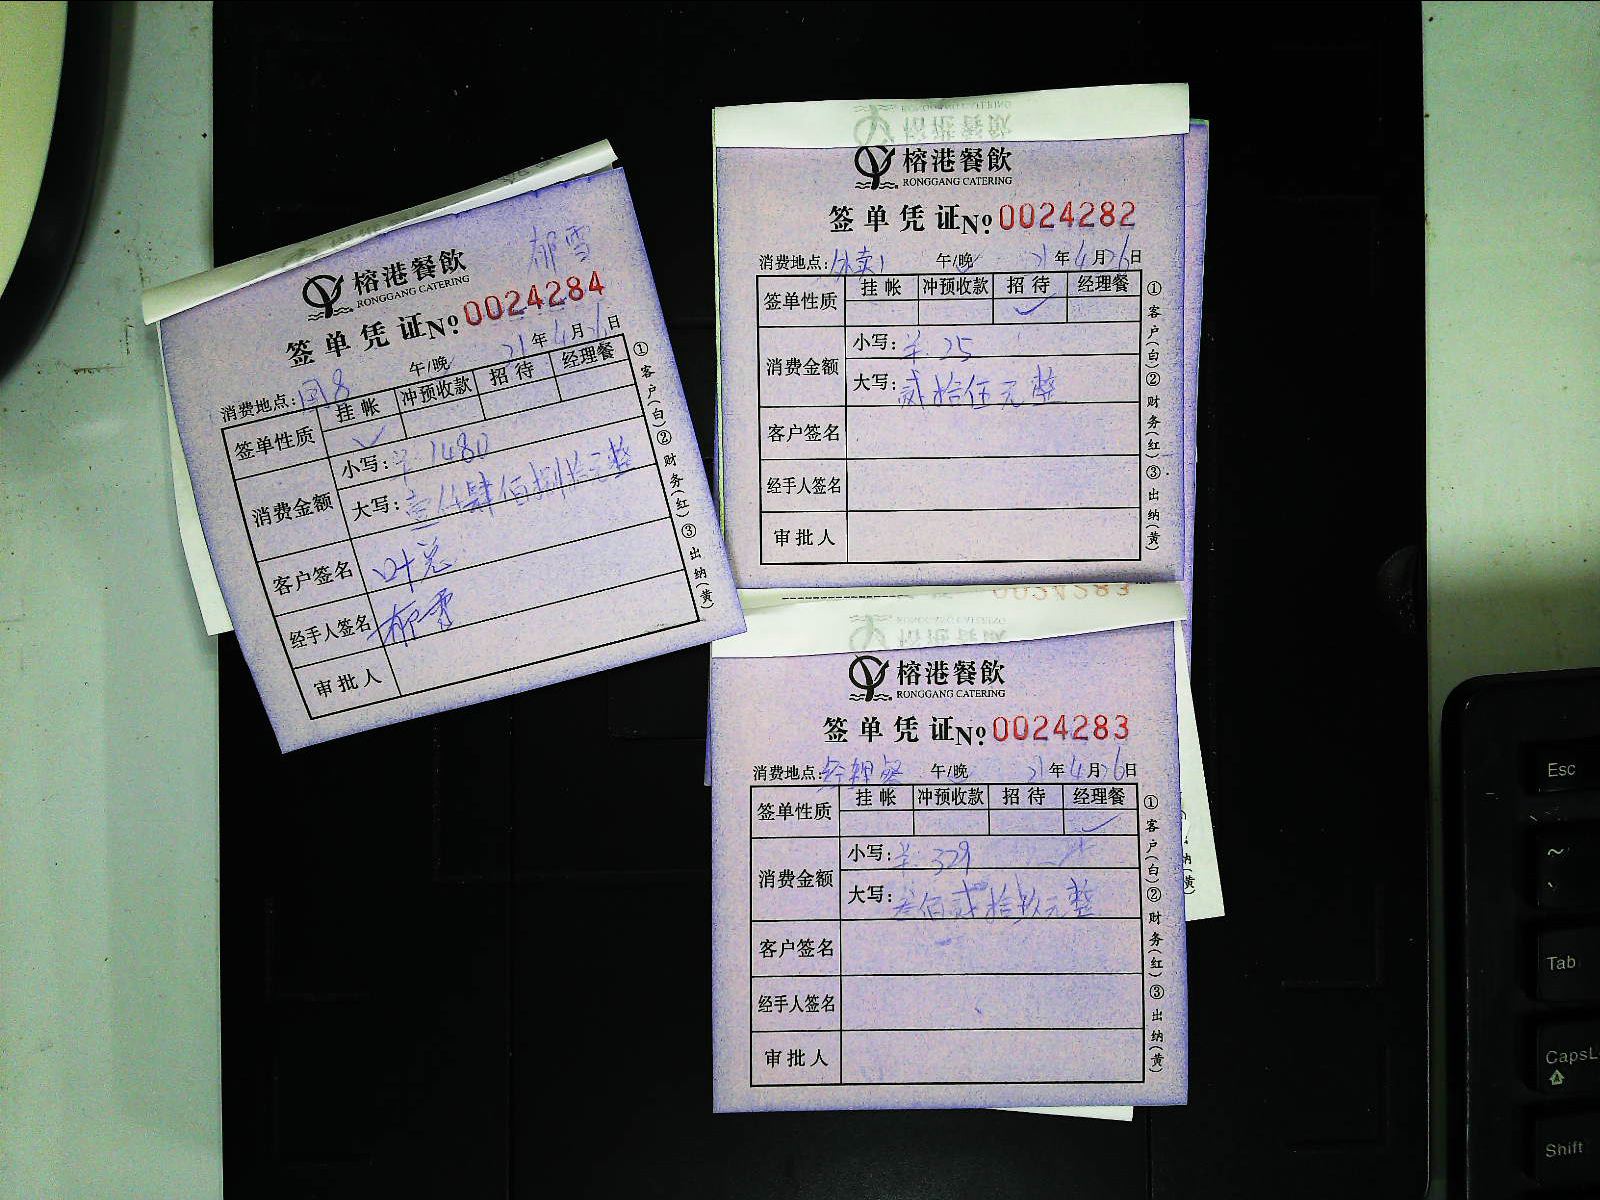 郁雪
榕港餐飲
RONGGANG CATERING
签单凭证 № 0024284
消费地点: 午/晚 21年4月26日
签单性质 挂帐 冲预收款 招待 经理餐
消费金额 小写: ¥ 1480
大写: 壹仟肆佰捌拾元整
客户签名
经手人签名 郁雪
审批人
①客户(白)②财务(红)③出纳(黄)
榕港餐飲
RONGGANG CATERING
签单凭证 № 0024282
消费地点: 外卖1 午/晚 21年4月26日
签单性质 挂帐 冲预收款 招待 经理餐
消费金额 小写: ¥ 25
大写: 贰拾伍元整
客户签名
经手人签名
审批人
①客户(白)②财务(红)③出纳(黄)
0024283
榕港餐飲
RONGGANG CATERING
签单凭证 № 0024283
消费地点: 经理餐 午/晚 21年4月26日
签单性质 挂帐 冲预收款 招待 经理餐
消费金额 小写: ¥ 329
大写: 叁佰贰拾玖元整
客户签名
经手人签名
审批人
①客户(白)②财务(红)③出纳(黄)
Esc
~
Tab
CapsL
Shift